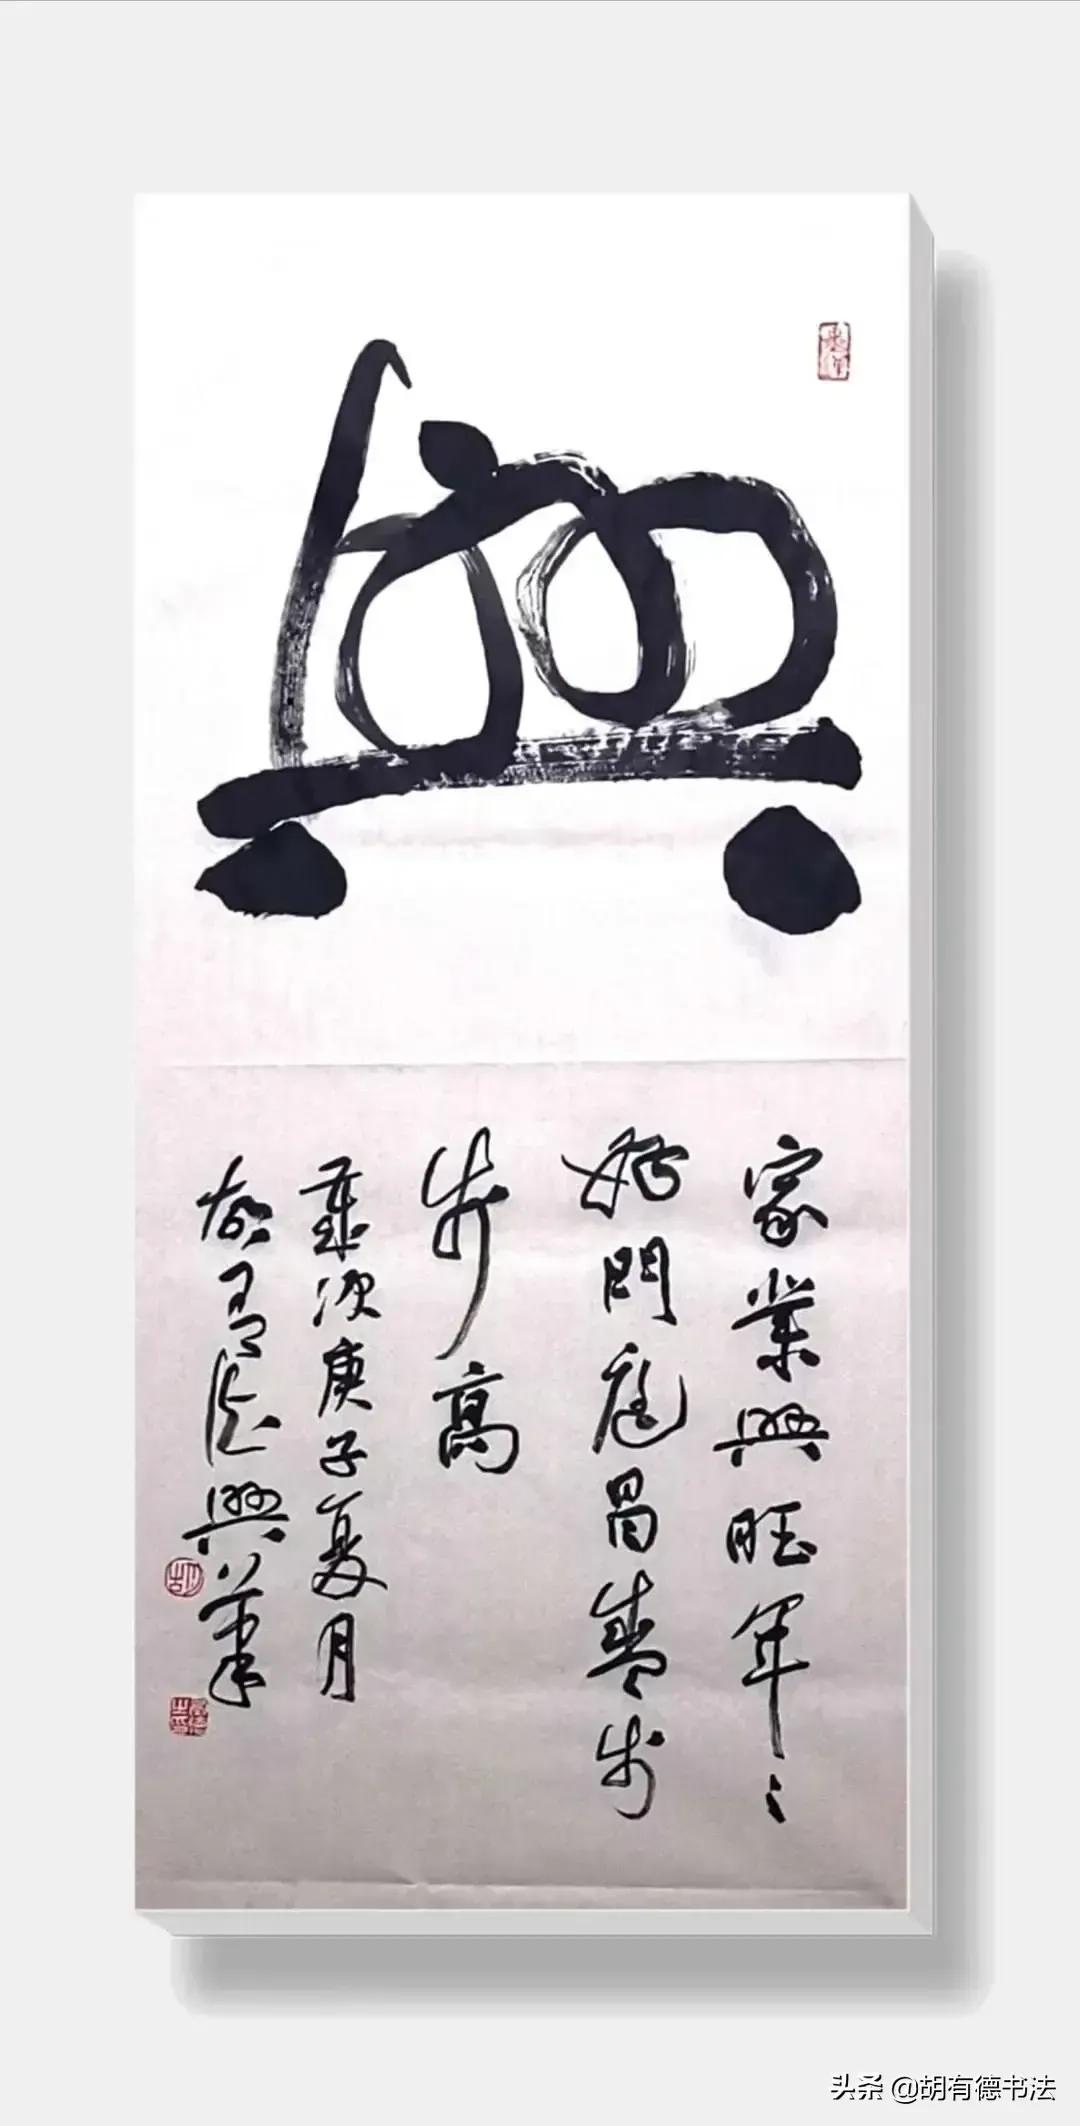 興
家業興旺年々
好門庭昌盛步
步高
歲次庚子夏月
胡有德興筆
头条 @胡有德书法